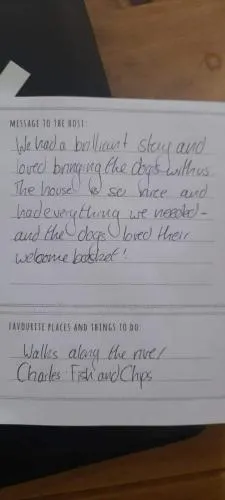 MESSAGE TO THE HOST:
We had a brilliant stay and
loved bringing the dogs with us
The house is so nice and
had everything we needed -
and the dogs loved their
welcome basket!
FAVOURITE PLACES AND THINGS TO DO:
Walks along the river
Charles Fish and Chips